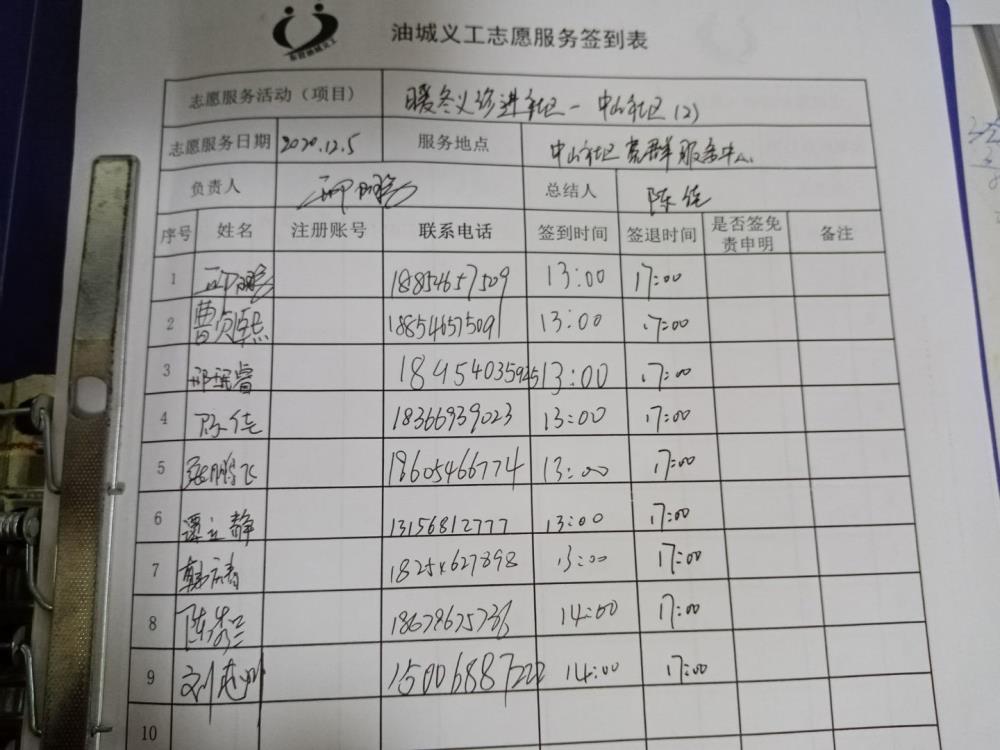 东营油城义工
油城义工志愿服务签到表
志愿服务活动（项目） 暖冬义诊进社区一中山社区(2)
志愿服务日期 2020.12.5 服务地点 中山社区党群服务中心
负责人 总结人 陈佳
序号 姓名 注册账号 联系电话 签到时间 签退时间 是否签免责申明 备注
1 18854657509 13:00 17:00
2 18854657509 13:00 17:00
3 13:00 17:00
4 陈佳 18366939023 13:00 17:00
5 张鹏飞 18605466774 13:00 17:00
6 谭立静 13156812777 13:00 17:00
7 18254627898 13:00 17:00
8 14:00 17:00
9 14:00 17:00
10